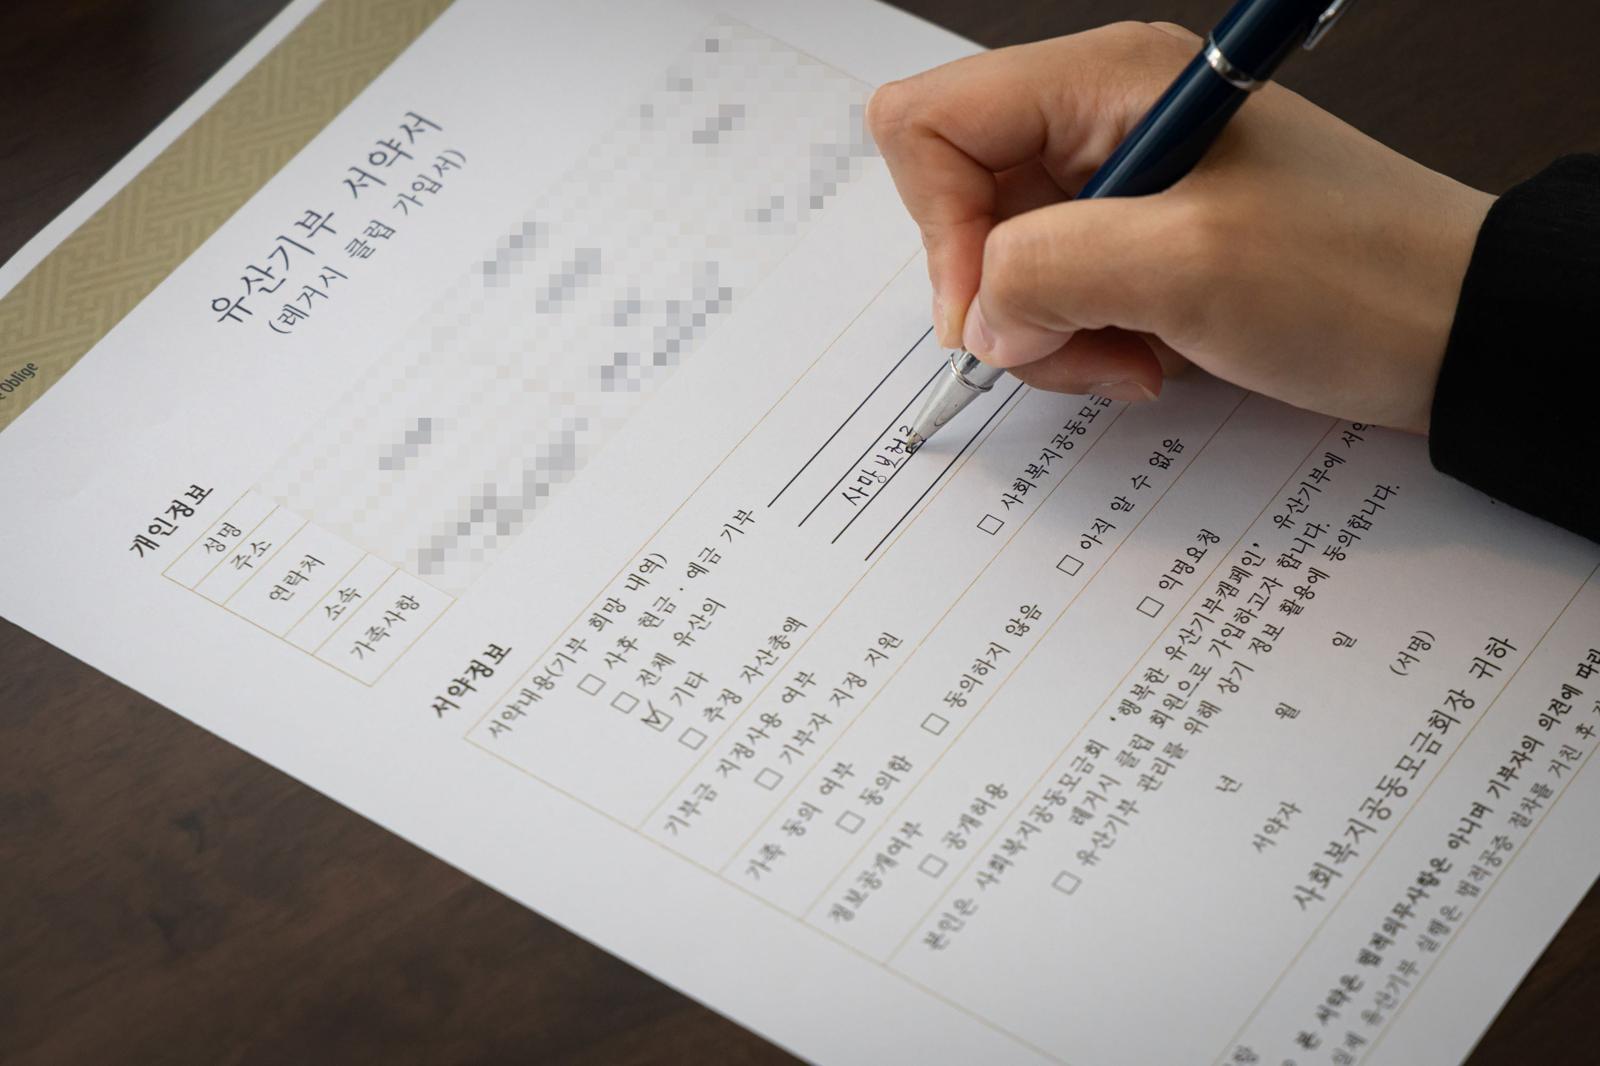 Oblige
유산기부 서약서
(레거시 클럽 가입서)
개인정보
성명
주소
연락처
소속
가족사항
서약정보
서약내용(기부 희망 내역)
☐ 사후 현금·예금 기부
☐ 전체 유산의
☑ 기타 사망보험금
☐ 추정 자산총액
기부금 지정사용 여부
☐ 기부자 지정 지원 ☐ 사회복지공동모금
가족 동의 여부
☐ 동의함 ☐ 동의하지 않음 ☐ 아직 알 수 없음
정보공개여부
☐ 공개허용 ☐ 익명요청
본인은 사회복지공동모금회 '행복한 유산기부캠페인' 유산기부에 서약
레거시 클럽 회원으로 가입하고자 합니다.
☐ 유산기부 관리를 위해 상기 정보 활용에 동의합니다.
년 월 일
서약자 (서명)
사회복지공동모금회장 귀하
본 서약은 법적의무사항은 아니며 기부자의 의견에 따라
실제 유산기부 실행은 법적공증 절차를 거친 후